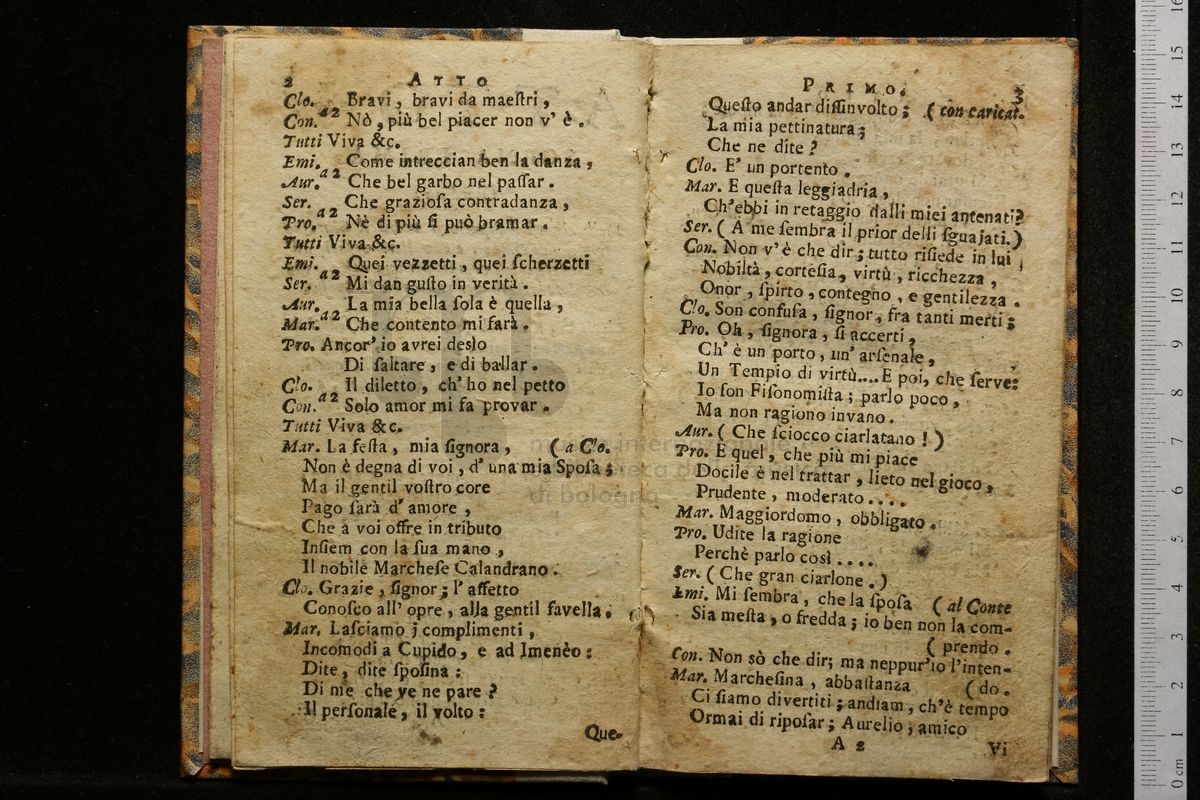 2 ATTO
Clo. Bravi, bravi da maeſtri,
a2
Con. Nò, più bel piacer non v' è.
Tutti Viva &c.
Emi. Come intreccian ben la danza,
a2
Aur. Che bel garbo nel paſſar.
Ser. Che grazioſa contradanza,
a2
Pro. Nè di più ſi può bramar.
Tutti Viva &c.
Emi. Quei vezzetti, quei ſcherzetti
a2
Ser. Mi dan guſto in verità.
Aur. La mia bella ſola è quella,
a2
Mar. Che contento mi farà.
Pro. Ancor' io avrei desìo
Di ſaltare, e di ballar.
Clo. Il diletto, ch' ho nel petto
a2
Con. Solo amor mi fa provar.
Tutti Viva &c.
Mar. La feſta, mia ſignora, (a Clo.
Non è degna di voi, d' una mia Spoſa;
Ma il gentil voſtro core
Pago ſarà d' amore,
Che a voi offre in tributo
Inſiem con la ſua mano,
Il nobile Marcheſe Calandrano.
Clo. Grazie, ſignor; l' affetto
Conoſco all' opre, alla gentil favella.
Mar. Laſciamo j complimenti,
Incomodi a Cupido, e ad Imenèo:
Dite, dite ſpoſina:
Di me che ve ne pare?
Il perſonale, il volto:
Que-
PRIMO. 3
Queſto andar diſſinvolto; (con caricat.
La mia pettinatura;
Che ne dite?
Clo. E' un portento.
Mar. E queſta leggiadria,
Ch'ebbi in retaggio dalli miei antenati?
Ser. (A me ſembra il prior delli ſguajati.)
Con. Non v' è che dir; tutto riſiede in lui,
Nobiltà, corteſia, virtù, ricchezza,
Onor, ſpirto, contegno, e gentilezza.
Clo. Son confuſa, ſignor, fra tanti merti;
Pro. Oh, ſignora, ſi accerti,
Ch' è un porto, un' arſenale,
Un Tempio di virtù.... E poi, che ſerve:
Io ſon Fiſonomiſta; parlo poco,
Ma non ragiono invano.
Aur. (Che ſciocco ciarlatano!)
Pro. E quel, che più mi piace
Docile è nel trattar, lieto nel gioco,
Prudente, moderato....
Mar. Maggiordomo, obbligato.
Pro. Udite la ragione
Perchè parlo così....
Ser. (Che gran ciarlone.)
Emi. Mi ſembra, che la ſpoſa (al Conte
Sia meſta, o fredda; io ben non la com-
(prendo.
Con. Non sò che dir; ma neppur'io l'inten-
Mar. Marcheſina, abbaſtanza (do.
Ci ſiamo divertiti; andiam, ch'è tempo
Ormai di ripoſar; Aurelio, amico
A 2 Vi